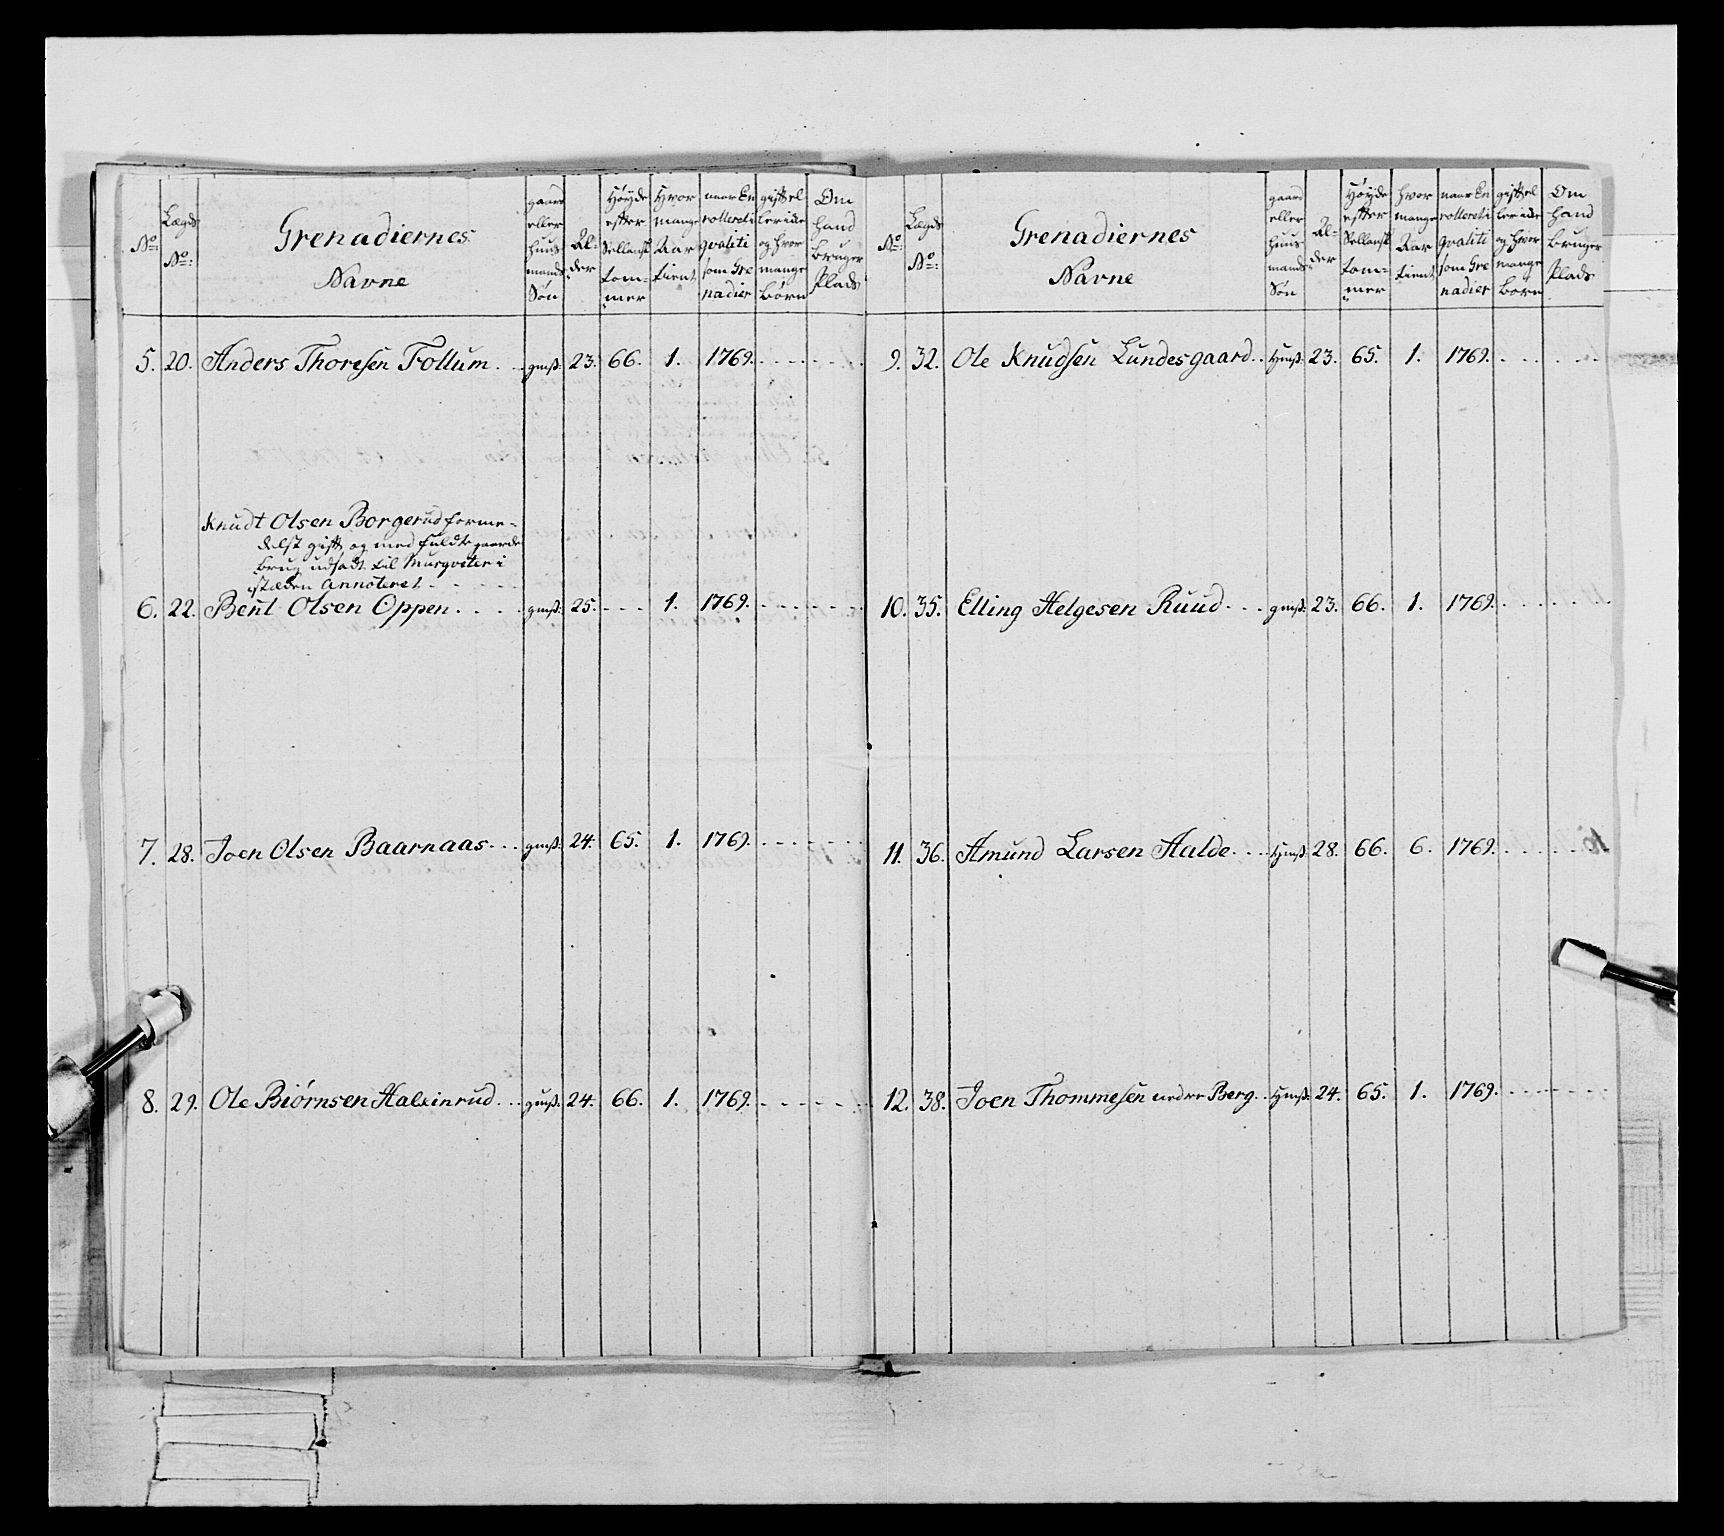 No: Lægds No: Grenadiernes Navne gaard eller huusmands Søn Alder Høyde efter Sellansk tommer Hvor mange Aar tient naar Enrolleret i qvaliti som Grenadier gift eller ide og hvor mange børn Om hand bruger Plads
5. 20. Anders Thoresen Follum gmß. 23. 66. 1. 1769.
Knudt Olsen Borgerud forme-
delst gift og med fuldt gaards
brug udsadt til Musqveter i
stæden Annoteret
6. 22. Bent Olsen Oppen gmß. 25. 1. 1769.
7. 28. Joen Olsen Baarnaas gmß. 24. 65. 1. 1769.
8. 29. Ole Biørnsen Halsinrud gmß. 24. 66. 1. 1769.
No: Lægds No: Grenadiernes Navne gaard eller huusmands Søn Alder Høyde efter Sellansk tommer hvor mange Aar tient naar Enrolleret i qvaliti som Grenadier gift eller ide og hvor mange born Om hand bruger Plads
9. 32. Ole Knudsen Lundesgaard Hmß. 23. 65. 1. 1769.
10. 35. Elling Helgesen Ruud gmß. 23. 66. 1. 1769.
11. 36. Amund Larsen Aalde Hmß. 28. 66. 6. 1769.
12. 38. Joen Thommesen nedre Berg Hmß. 24. 65. 1. 1769.